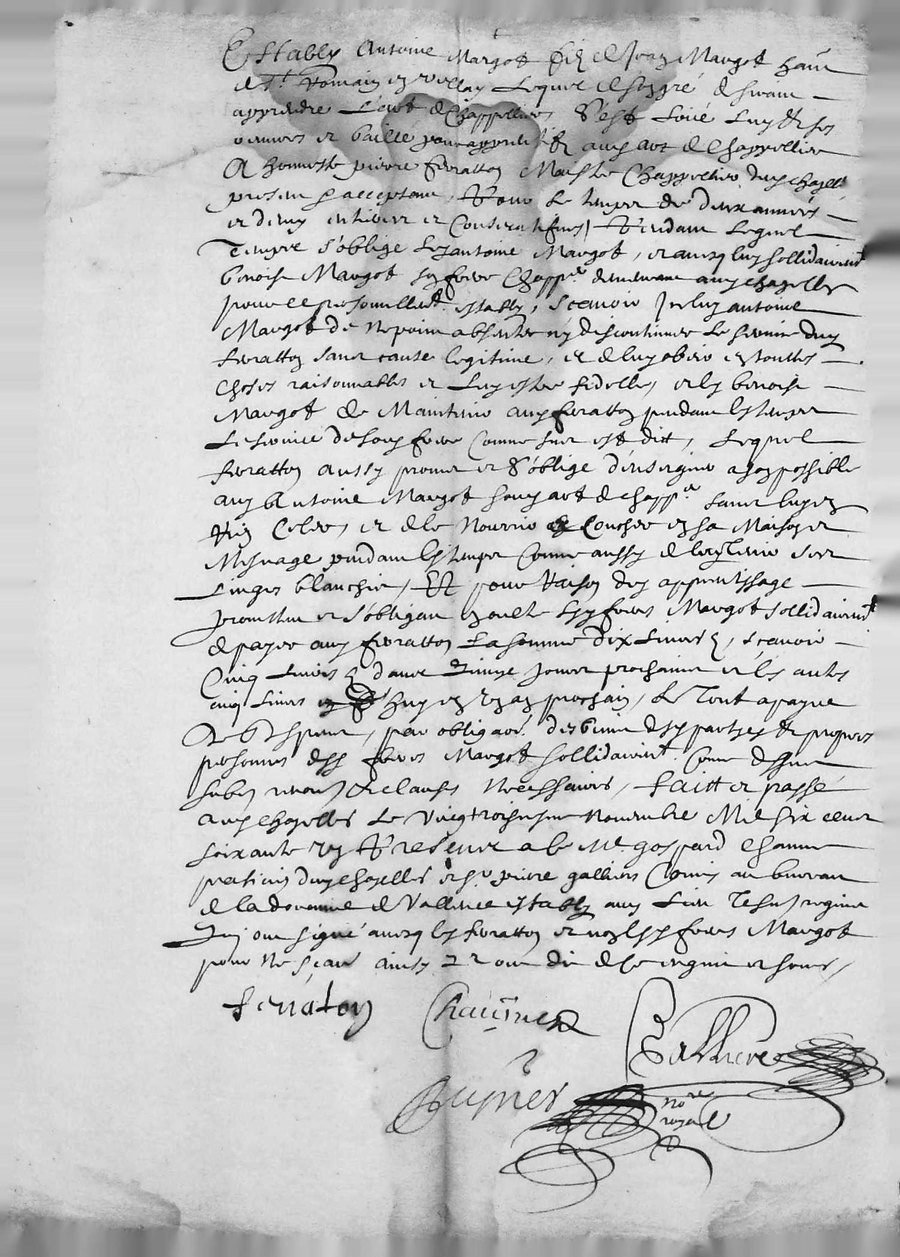 Establÿ Antoine Margot filz de Jean Margot habi
de St Romain en vellay Lequel de son gré desirant
apprendre L'art de chappellier S'est Loüé Luy et ses
oeuvres et baillé pour apprentif aud art de chappellier
A honneste pierre ferratton Maistre Chappellier dud chazelles
present et acceptant, Pour Le temps de deux années
et demy entieres et Consecutifves, Pendant Lequel
Temps s'oblige Led antoine Margot, et avecq luy sollidairemt
benoist Margot son frere Chappr demeurant aud chazelles
pour ce personnellemt establÿ, Scavoir Icelluy antoine
Margot de Ne point absenter ny discontinuer Le service dud
ferratton sans cause legitime, et de luy obeir en touttes
choses raisonnables et Luy estre fidelle, et led benoist
Margot de Maintenir aud ferratton pendant led temps
Le service de sond frere Comme sus est dit, Lequel
ferratton aussy promet et s'oblige d'enseigner a son possible
aud Antoine Margot sond art de chappr sans luy en
Rien Celer, et de le Nourrir et Coucher en sa Maison et
Mesnage pendant led temps Comme aussy de luy tenir ses
Linges blanchis, Et pour Raison dud apprentissage
promettent et s'obligent lesd freres Margot sollidairemt
de payer aud ferratton La somme dix Livres, Scavoir
Cinq Livres dans quinze jours prochains et les autres
cinq Livres d'huy en un an prochain, Le Tout a payne
de despens, par obligaon des biens desd parties et propres
personnes desd freres Margot sollidairemt Comme dessus
submi renon et clauses Necessaires, faitt et passé
aud chazelles Le Vingtroisiesme Novembre Mil six cent
soixante un Presents a ce Me gaspard Chaume
praticien dud chazelles et Sr pierre gallien Commis au bureau
de la doüanne de Vallence establÿ aud Lieu Tesm requis
qui ont signé avecq led ferratton et non lesd freres Margot
pour Ne sçavoir ainsy qu'ont dit de ce enquis et somés
ferraton Chaume Gallien
nore
royal